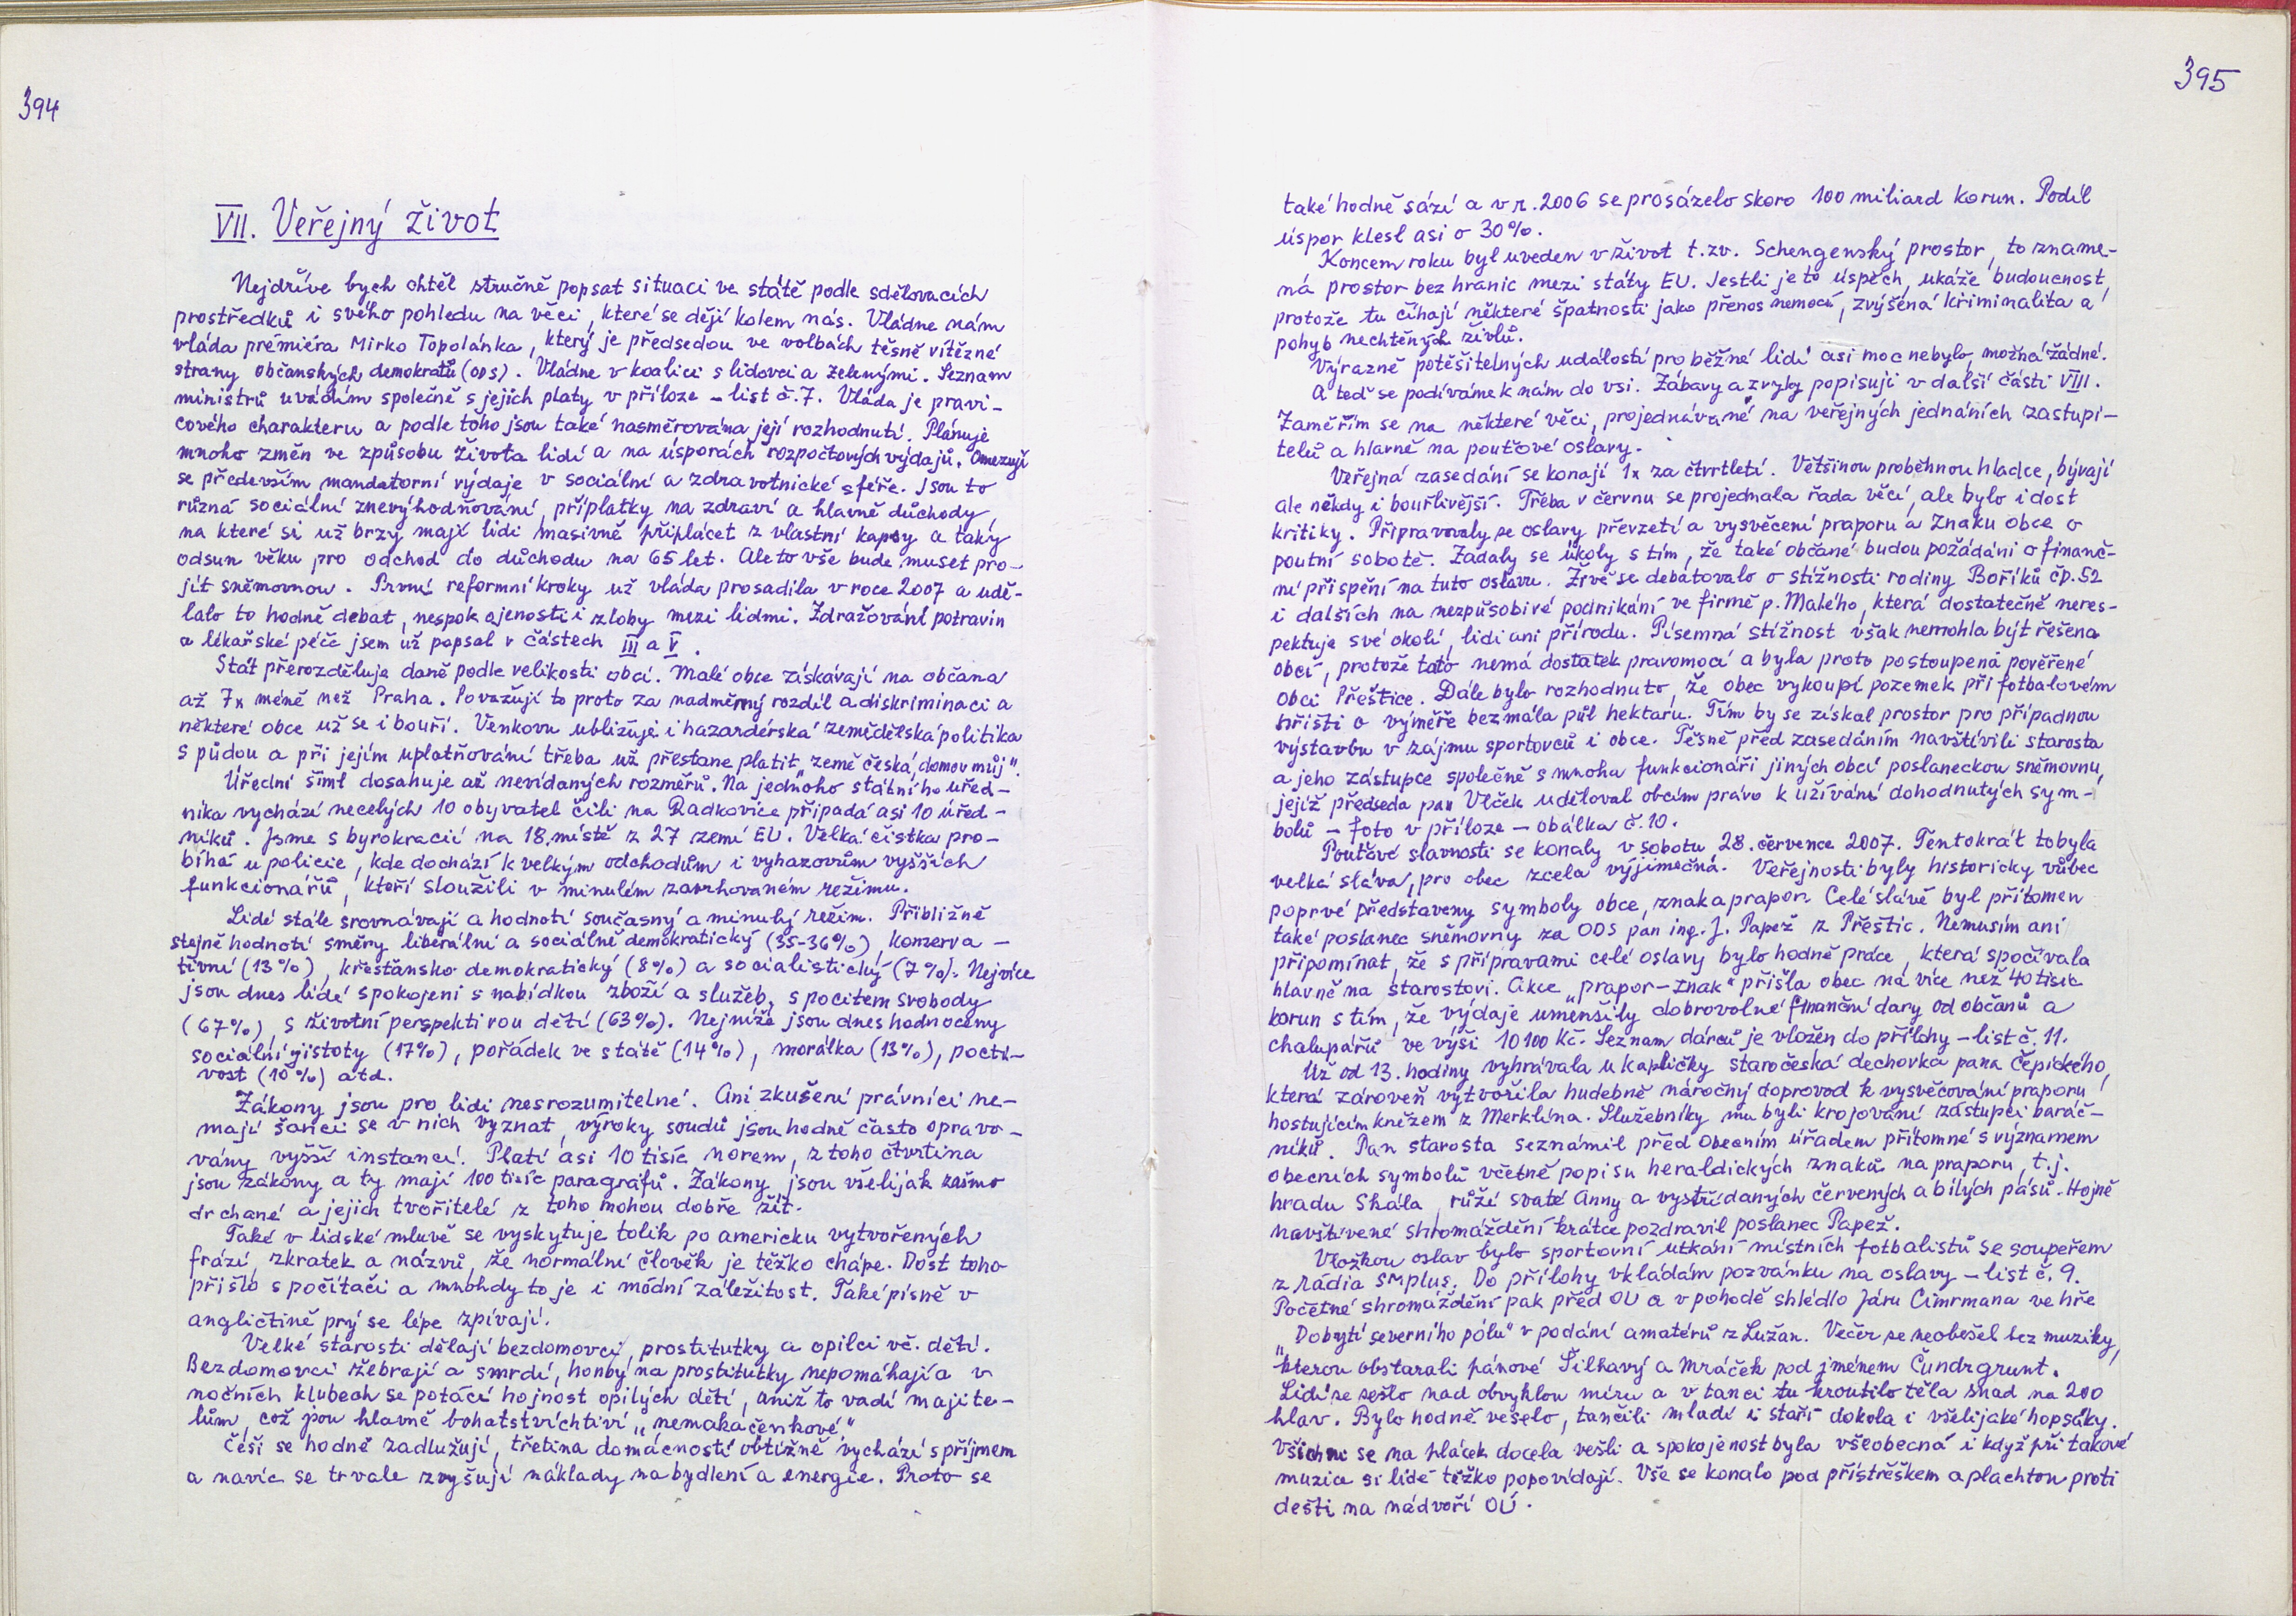 394
VII. Veřejný život
Nejdříve bych chtěl stručně popsat situaci ve státě podle sdělovacích
prostředků i svého pohledu na věci, které se dějí kolem nás. Vládne nám
vláda premiéra Mirko Topolánka, který je předsedou ve volbách těsně vítězné
strany občanských demokratů (ODS). Vládne v koalici s lidovci a zelenými. Seznam
ministrů uvádím společně s jejich platy v příloze – list č. 7. Vláda je pravi-
cového charakteru a podle toho jsou také nasměrována její rozhodnutí. Plánuje
mnoho změn ve způsobu života lidí a na úsporách rozpočtových výdajů. Omezují
se především mandatorní výdaje v sociální a zdravotnické sféře. Jsou to
různá sociální znevýhodňování, příplatky na zdraví a hlavně důchody,
na které si už brzy mají lidi masivně připlácet z vlastní kapsy a taky
odsun věku pro odchod do důchodu na 65 let. Ale to vše bude muset pro-
jít sněmovnou. První reformní kroky už vláda prosadila v roce 2007 a udě-
lalo to hodně debat, nespokojenosti i zloby mezi lidmi. Zdražování potravin
a lékařské péče jsem už popsal v částech III a V.
Stát přerozděluje daně podle velikosti obcí. Malé obce získávají na občana
až 7x méně než Praha. Považují to proto za nadměrný rozdíl a diskriminaci a
některé obce už se i bouří. Venkovu ubližuje i hazardérská zemědělská politika
s půdou a při jejím uplatňování třeba už přestane platit „země česká, domov můj".
Úřední šiml dosahuje až nevídaných rozměrů. Na jednoho státního úřed-
níka vychází necelých 10 obyvatel čili na Radkovice připadá asi 10 úřed-
níků. Jsme s byrokracií na 18. místě z 27 zemí EU. Velká čistka pro-
bíhá u policie, kde dochází k velkým odchodům i vyhazovům vyšších
funkcionářů, kteří sloužili v minulém zavrhovaném režimu.
Lidé stále srovnávají a hodnotí současný a minulý režim. Přibližně
stejně hodnotí směry liberální a sociálně demokratický (35-36%), konzerva-
tivní (13%), křesťansko demokratický (8%) a socialistický (7%). Nejvíce
jsou dnes lidé spokojeni s nabídkou zboží a služeb, s pocitem svobody
(67%), s životní perspektivou dětí (63%). Nejníže jsou dnes hodnoceny
sociální jistoty (17%), pořádek ve státě (14%), morálka (13%), pocti-
vost (10%) atd.
Zákony jsou pro lidi nesrozumitelné. Ani zkušení právníci ne-
mají šanci se v nich vyznat, výroky soudů jsou hodně často opravo-
vány vyšší instancí. Platí asi 10 tisíc norem, z toho čtvrtina
jsou zákony a ty mají 100 tisíc paragrafů. Zákony jsou všelijak zašmo
drchané a jejich tvořitelé z toho mohou dobře žít.
Také v lidské mluvě se vyskytuje tolik po americku vytvořených
frází, zkratek a názvů, že normální člověk je těžko chápe. Dost toho
přišlo s počítači a mnohdy to je i módní záležitost. Také písně v
angličtině prý se lépe zpívají.
Velké starosti dělají bezdomovci, prostitutky a opilci vč. dětí.
Bezdomovci žebrají a smrdí, honby na prostitutky nepomáhají a v
nočních klubech se potácí hojnost opilých dětí, aniž to vadí majite-
lům, což jsou hlavně bohatstvíchtiví „nemakačenkové".
Češi se hodně zadlužují, třetina domácností obtížně vychází s příjmem
a navíc se trvale zvyšují náklady na bydlení a energie. Proto se
395
také hodně sází a v r. 2006 se prosázelo skoro 100 miliard korun. Podíl
úspor klesl asi o 30%.
Koncem roku byl uveden v život t.zv. Schengenský prostor, to zname-
ná prostor bez hranic mezi státy EU. Jestli je to úspěch, ukáže budoucnost,
protože tu číhají některé špatnosti jako přenos nemocí, zvýšená kriminalita a
pohyb nechtěných živlů.
Výrazně potěšitelných událostí pro běžné lidi asi moc nebylo, možná žádné.
A teď se podíváme k nám do vsi. Zábavy a zvyky popisuji v další části VIII.
Zaměřím se na některé věci, projednávané na veřejných jednáních zastupi-
telů a hlavně na pouťové oslavy.
Veřejná zasedání se konají 1x za čtvrtletí. Většinou proběhnou hladce, bývají
ale někdy i bouřlivější. Třeba v červnu se projednala řada věcí, ale bylo i dost
kritiky. Připravovaly se oslavy převzetí a vysvěcení praporu a znaku obce o
poutní sobotě. Zadaly se úkoly s tím, že také občané budou požádáni o finanč-
ní přispění na tuto oslavu. Živě se debatovalo o stížnosti rodiny Boříků čp. 52
i dalších na nezpůsobivé podnikání ve firmě p. Malého, která dostatečně neres-
pektuje své okolí, lidi ani přírodu. Písemná stížnost však nemohla být řešena
obcí, protože tato nemá dostatek pravomocí a byla proto postoupena pověřené
obci Přeštice. Dále bylo rozhodnuto, že obec vykoupí pozemek při fotbalovém
hřišti o výměře bezmála půl hektaru. Tím by se získal prostor pro případnou
výstavbu v zájmu sportovců i obce. Těsně před zasedáním navštívili starosta
a jeho zástupce společně s mnoha funkcionáři jiných obcí poslaneckou sněmovnu,
jejíž předseda pan Vlček uděloval obcím právo k užívání dohodnutých sym-
bolů – foto v příloze – obálka č. 10.
Pouťové slavnosti se konaly v sobotu 28. července 2007. Tentokrát to byla
velká sláva, pro obec zcela výjimečná. Veřejnosti byly historicky vůbec
poprvé představeny symboly obce, znak a prapor. Celé slávě byl přítomen
také poslanec sněmovny za ODS pan ing. J. Papež z Přeštic. Nemusím ani
připomínat, že s přípravami celé oslavy bylo hodně práce, která spočívala
hlavně na starostovi. Akce „prapor-znak" přišla obec na více než 40 tisíc
korun s tím, že výdaje umenšily dobrovolné finanční dary od občanů a
chalupářů ve výši 10100 Kč. Seznam dárců je vložen do přílohy – list č. 11.
Už od 13. hodiny vyhrávala u kapličky staročeská dechovka pana Čepického,
která zároveň vytvořila hudebně náročný doprovod k vysvěcování praporu
hostujícím knězem z Merklína. Služebníky mu byli krojovaní zástupci baráč-
níků. Pan starosta seznámil před Obecním úřadem přítomné s významem
obecních symbolů včetně popisu heraldických znaků na praporu, t.j.
hradu Skála, růží svaté Anny a vystřídaných červených a bílých pásů. Hojně
navštívené shromáždění krátce pozdravil poslanec Papež.
Vložkou oslav bylo sportovní utkání místních fotbalistů se soupeřem
z rádia SMplus. Do přílohy vkládám pozvánku na oslavy – list č. 9.
Početné shromáždění pak před OÚ a v pohodě shlédlo Járu Cimrmana ve hře
„Dobytí severního pólu" v podání amatérů z Lužan. Večer se neobešel bez muziky,
kterou obstarali pánové Šilhavý a Mráček pod jménem Čundrgrunt.
Lidí se sešlo nad obvyklou míru a v tanci tu kroutilo těla snad na 200
hlav. Bylo hodně veselo, tančili mladí i staří dokola i všelijaké hopsáky.
Všichni se na plácek docela vešli a spokojenost byla všeobecná i když při takové
muzice si lidé těžko popovídají. Vše se konalo pod přístřeškem a plachtou proti
dešti na nádvoří OÚ.